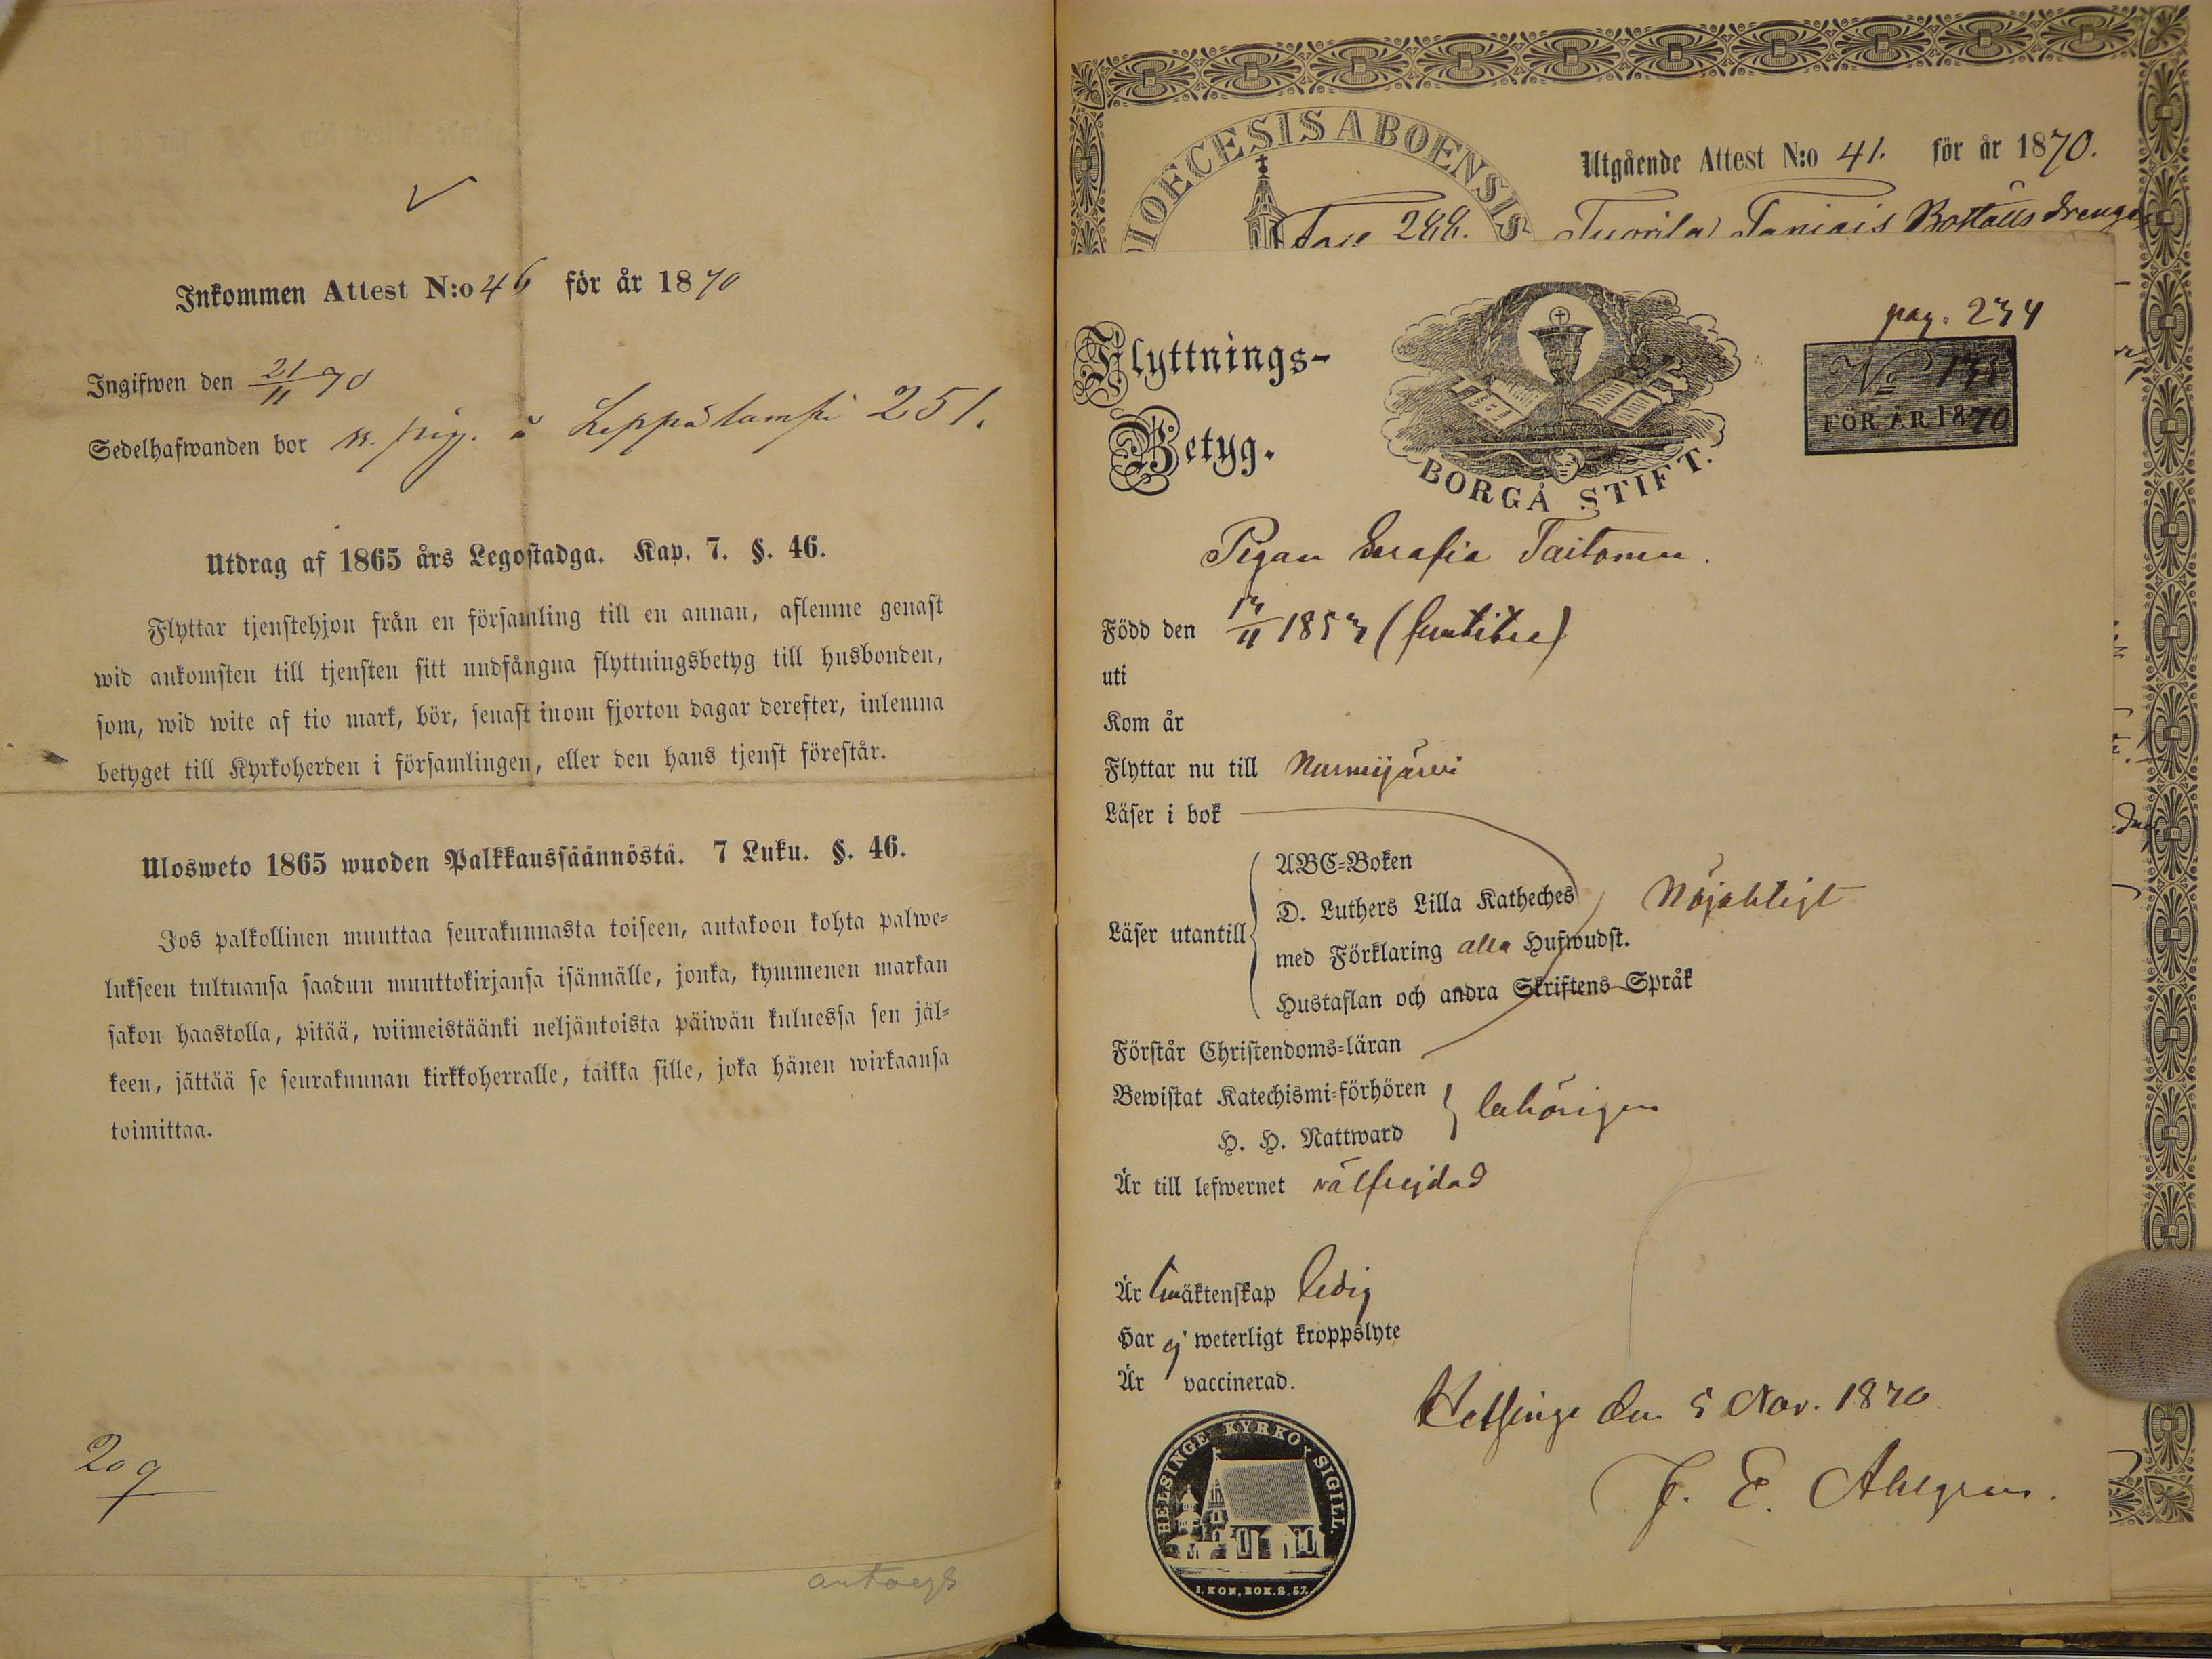 Inkommen Attest N:o 46 för år 1870
Ingifwen den 21/11 70
Sedelhafwanden bor å Leppälampi 251.
Utdrag af 1865 års Legostadga. Kap. 7. §. 46.
Flyttar tjenstehjon från en församling till en annan, aflemne genast
wid ankomsten till tjensten sitt undfångna flyttningsbetyg till husbonden,
som, wid wite af tio mark, bör, senast inom fjorton dagar derefter, inlemna
betyget till Kyrkoherden i församlingen, eller den hans tjenst förestår.
Ulosweto 1865 wuoden Palkkaussäännöstä. 7 Luku. §. 46.
Jos palkollinen muuttaa seurakunnasta toiseen, antakoon kohta palwe-
lukseen tultuansa saadun muuttokirjansa isännälle, jonka, kymmenen markan
sakon haastolla, pitää, wiimeistäänki neljäntoista päiwän kuluessa sen jäl-
keen, jättää se seurakunnan kirkkoherralle, taikka sille, joka hänen wirkaansa
toimittaa.
209
DIOECESIS ABOENSIS
Utgående Attest N:o 41. för år 1870.
288.
pag. 234
Flyttnings-
Betyg.
BORGÅ STIFT.
No
FÖR ÅR 1870
Pigan Serafia
Född den 13/11 1853
uti
Kom år
Flyttar nu till Nurmijärvi
Läser i bok
ABC-Boken
D. Luthers Lilla Katheches
Läser utantill
Nöjaktigt
med Förklaring alla Hufwudst.
Hustaflan och andra Skriftens Språk
Förstår Christendoms-läran
Bewistat Katechismi-förhören
behörigen
H. H. Nattward
Är till lefwernet välfrejdad
Är till äktenskap ledig
Har ej weterligt kroppslyte
Är vaccinerad.
Helsinge den 5 Nov. 1870.
J. E. Ahlgren.
HELSINGE KYRKO SIGILL.
I. KON. BOK. 8, 57.